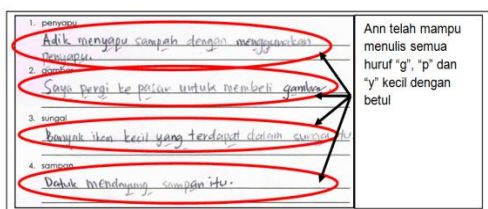 1. penyapu
Adik menyapu sampah dengan menggunakan
penyapu.
2. gambar
Saya pergi ke pasar untuk membeli gambar.
3. sungai
Banyak ikan kecil yang terdapat dalam sungai itu
4. sampan
Datuk mendayung sampan itu.
Ann telah mampu
menulis semua
huruf "g", "p" dan
"y" kecil dengan
betul